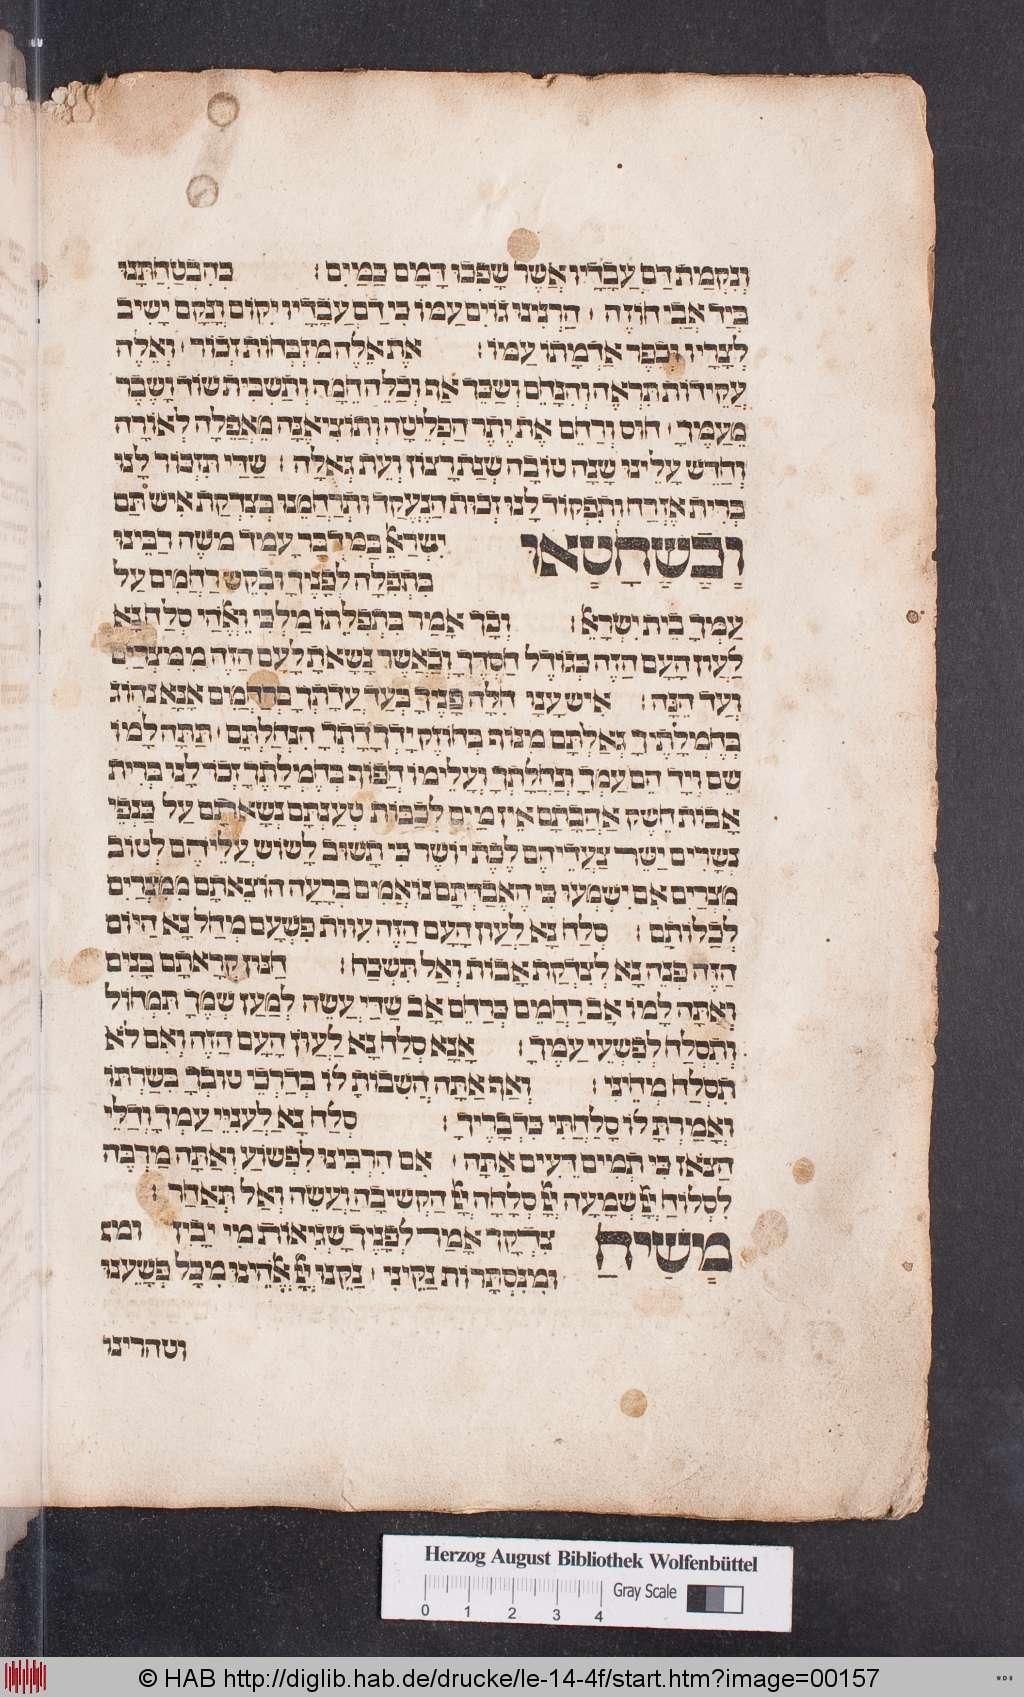 וְנִקְמַת דַם עֲבָדָיו אֲשֶר שָפְכוּ דָמָם כַמַיִם : כְהִבְטַחְתָּנוּ
בְיַד אֲבִי חוֹזֶה הַרְנִינוּ גוֹיִם עַמוֹ כִּי דַם עֲבָדָיו יִקוֹם וְנָקָם יָשִיב
לְצָרָיו וְכִפֶּר אַדְמָתוֹ עַמוֹ : את אֵלֶה מִזְבְּחוֹת זכוֹר וְאֵלֶה
עֲקֵידוֹת תִּרְאֶה וְהִנָּחֵם וְשַׁכֵּךְ אַף וְכַלֵּה חֵמָה וְתַשְׁבִּית שוֹד וָשֶבֶר
מֵעַמֶךָ חוּס וְרַחֵם אֶת יֶתֶר הַפְּלֵיטָה וְתוֹצִיאֶנָּה מֵאֲפֵלָה לְאוֹרָה
וְחַדֵש עָלֵינוּ שָנָה טוֹבָה שְנַת רָצוֹן וְעֵת גְאֻלָּה : שַדַּי תִּזְכּוֹר לָנוּ
בְּרִית אֶזְרָח וְתִפְקוֹד לָנוּ זְכוּת הַנֶעֱקָד וּתְרַחֲמֵנוּ בְּצִדְקַת אִיש תָּם
וּכְשֶחָטְאוּ יִשְרָאֵל בַּמִדְבָּר עָמַד מֹשֶה רַבֵּינוּ
בִּתְפִלָּה לְפָנֶיךָ וּבִקֵש רַחֲמִים עַל
עַמְּךָ בֵּית יִשְרָאֵל : וְכָךְ אָמַר בִּתְפִלָּתוֹ מַלְכִּי וֵאלֹהַי סְלַח נָא
לַעֲוֹן הָעָם הַזֶה כְּגוֹדֶל חַסְדֶךָ וְכַאֲשֶר נָשָאתָ לָעָם הַזֶה מִמִּצְרַיִם
וְעַד הֵנָּה : אִיש עָנָיו חִלָּה פָנֶיךָ בְּעַד עֲדָתְךָ בְּרַחֲמִים אָנָא נְהוֹג
בְּחֶמְלָתֶיךָ גְאַלְתָּם מִנּוֹף בְּחוֹזֶק יָדֶךָ הִנְחַלְתָּם תַּתָּה לָמוֹ
שֵם וָיָד הֵם עַמְּךָ וְנַחֲלָתֶךָ וְעָלֵימוֹ חֲפוֹף בְּחֶמְלָתֶךָ זְכָר לָנוּ בְּרִית
אָבוֹת חֵשֶק אֲהַבְתָּם אֵין מַיִם לְכַבּוֹת טְעַנְתָּם נְשָׂאתָם עַל כַּנְפֵי
נְשָרִים יַשֵר צַעֲדֵיהֶם לֶכֶת יוֹשֶר כִּי תָשוּב לָשׂוּשׂ עֲלֵיהֶם לְטוֹב
מִצְרַיִם אִם יִשְמְעוּ כִּי הֶאֱבַדְתָּם נוֹאֲמִים בְּרָעָה הוֹצֵאתָם מִמִצְרַיִם
לְכַלּוֹתָם : סְלַח נָא לַעֲוֹן הָעָם הַזֶה עִוּוּת פִּשְעָם מְחַל נָא הַיּוֹם
הַזֶּה פְּנֵה נָא לְצִדְקַת אָבוֹת וְאַל תִּשְכַּח : חַנּוּן קְרָאתָם בָּנִים
וְאַתָּה לָמוֹ אָב רַחֲמִים כְּרַחֵם אָב שַדַּי עֲשֵה לְמַעַן שְמֶךָ תִּמְחוֹל
וְתִסְלַח לְפִשְעֵי עַמֶּךָ : אָנָּא סְלַח נָא לַעֲוֹן הָעָם הַזֶּה וְאִם לֹא
תִסְלַח מְחֵינִי : וְאַף אַתָּה הֲשִבוֹתָ לוֹ כְּדַרְכֵי טוּבְךָ בִּשַּׂרְתּוֹ
וְאָמַרְתָּ לוֹ סָלַחְתִּי כִּדְבָרֶיךָ : סְלַח נָא לַעֲנִיֵּי עַמְּךָ וְדַלֵּי
הַצֹּאן כִּי תְמִים דֵּעִים אַתָּה אִם הִרְבֵּינוּ לִפְשׁוֹעַ וְאַתָּה מַרְבֶּה
לִסְלוֹחַ יְיָ שְמָעָה יְיָ סְלָחָה יְיָ הַקְשִיבָה וַעֲשֵׂה וְאַל תְּאַחַר :
מְשִיחַ צִדְקָךְ אָמַר לְפָנֶיךָ שְגִיאוֹת מִי יָבִין ומנ
וּמִנִּסְתָּרוֹת נַקֵּינִי נַקֵּנוּ יְיָ אֱלֹהֵינוּ מִכָּל פְּשָעֵנוּ
וטהרינו
Herzog August Bibliothek Wolfenbüttel
0 1 2 3 4 Gray Scale
© HAB http://diglib.hab.de/drucke/le-14-4f/start.htm?image=00157